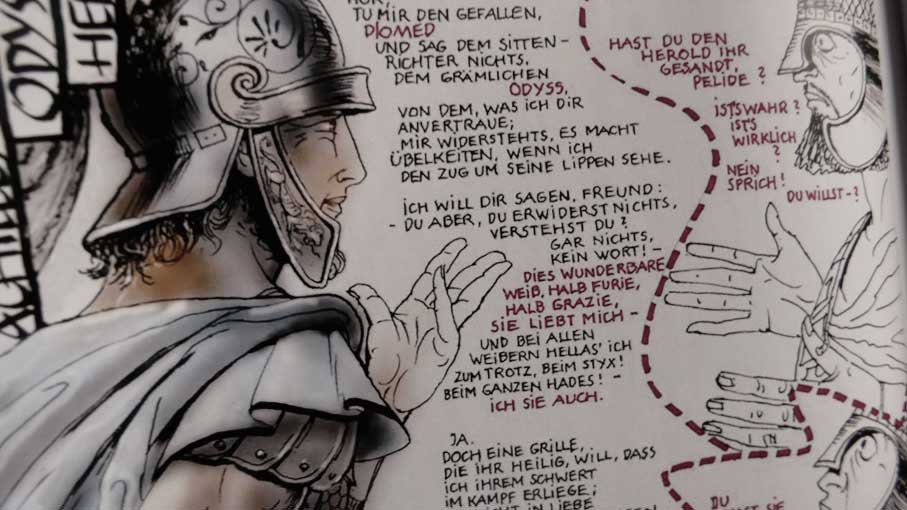 ODYS
TU MIR DEN GEFALLEN,
DIOMED
UND SAG DEM SITTEN-
RICHTER NICHTS,
DEM GRÄMLICHEN
ODYSS,
VON DEM, WAS ICH DIR
ANVERTRAUE;
MIR WIDERSTEHTS, ES MACHT
ÜBELKEITEN, WENN ICH
DEN ZUG UM SEINE LIPPEN SEHE.
ICH WILL DIR SAGEN, FREUND:
- DU ABER, DU ERWIDERST NICHTS,
VERSTEHST DU?
GAR NICHTS,
KEIN WORT! -
DIES WUNDERBARE
WEIB, HALB FURIE,
HALB GRAZIE,
SIE LIEBT MICH -
UND BEI ALLEN
WEIBERN HELLAS' ICH
ZUM TROTZ, BEIM STYX!
BEIM GANZEN HADES! -
ICH SIE AUCH.
JA.
DOCH EINE GRILLE,
DIE IHR HEILIG, WILL, DASS
ICH IHREM SCHWERT
IM KAMPF ERLIEGE;
IN LIEBE
HAST DU DEN
HEROLD IHR
GESANDT,
PELIDE?
ISTS WAHR?
ISTS
WIRKLICH
?
NEIN
SPRICH!
DU WILLST -?
DU